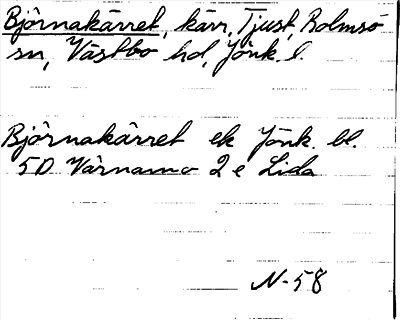 Björnakärret, kärr, Tjust, Bolmsö
sn, Västbo hd, Jönk. l.
Björnakärret ek Jönk. bl.
5D Värnamo 2e Lida
N-58